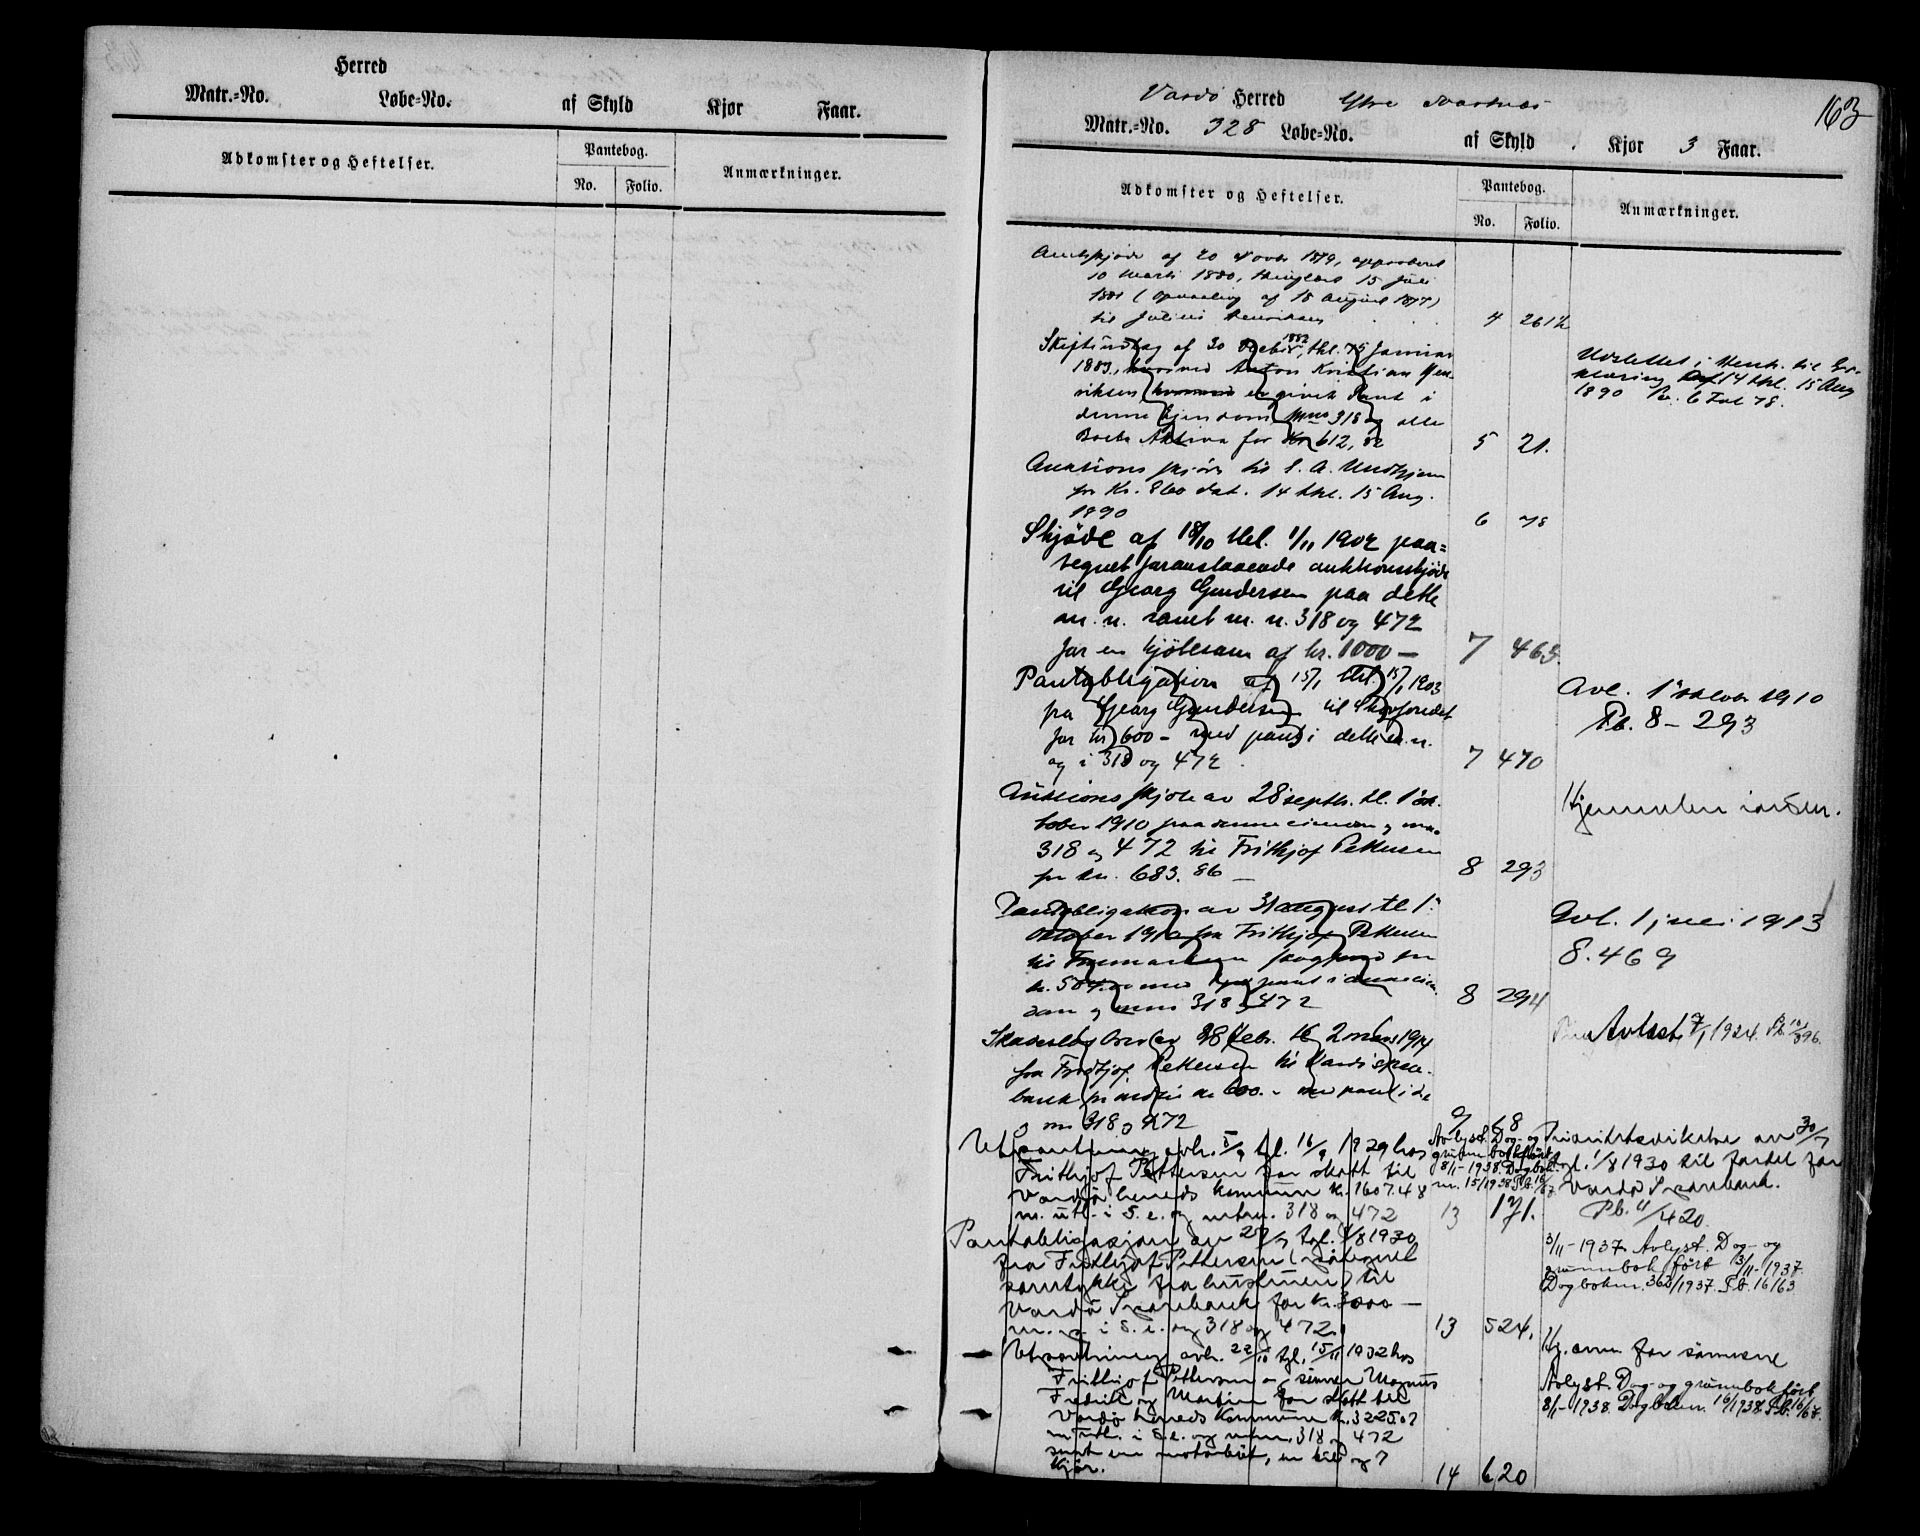 Herred
Matr.=No. Løbe-No. af Skyld Kjør Faar.
Adkomster og Heftelser.
Pantebog.
No. Folio.
Anmærkninger.
163
Vardø Herred Ytre
Matr.=No. 328 Løbe-No. af Skyld Kjør 3 Faar.
Adkomster og Heftelser.
Pantebog.
No. Folio.
Anmærkninger.
af 20 1879, approberet
10 Marts 1880, thinglæst 15 Juli
1881 ( af 18 August 1877)
til Julius Henriksen 4 261
af 30 1882, thl. 15 Januar
1883, hvorved Anton Kristian Hen-
riksen er givet Pant i
denne Eiendom, 318 og alle
Boets Aktiva for Kr 612, 5 21.
Udslettet i Henh. til Er-
klæring 14 thl. 15 Aug
1890 6 Fol 78.
Auktions skjøde til
for Kr. 860 dat. 14 thl. 15 Aug.
1890 6 78
Skjøde af 18/10 thl. 1/11 1902 paa=
tegnet foranstaaende auktionsskjøde
til Georg Gundersen paa dette
m. n. samt m. n. 318 og 472
for en kjøbesum af kr. 1000 — 7 463.
Pantobligation af 15/1 thl. 15/1 1903
fra Georg Gundersen til Skovfondet
for kr 600 – med pant i dette m. n.
og i 318 og 472. 7 470
Avl. 1 oktober 1910
Pb. 8 – 293
Auktions skjøte av 28 septbr. tl. 1 ok-
tober 1910 paa denne eiendom og
318 og 472 til Frithjof Pettersen
for kr. 683.86 — 8 293
Hjemmelen
Pantobligation av 31 august tl 1.
oktober 1910 fra Frithjof Pettersen
til Finmarkens skogfond for
kr. 504. med pant i denne eien-
dom og 318 og 472 8 294
Avl. 1 juli 1913
8.469
Skadesløsbrev av 28 febr. tl 2 mars 1914
fra Fridtjof Pettersen til Vardø spare-
bank for kr 600.– med pant i
og 318 og 472 9 18
Avlyst 9/1 1924. Pb. 10/396.
Utpantning avh. 5/9 tgl. 16/9 1929 hos
Frithjof Pettersen for skatt til
Vardø herreds kommune kr. 1607.48
m. utl. i S. e. og mtrn. 318 og 472 13 171.
Avlyst. Dag- og
grunnbok ført
8/1-1938. Dagbok
nr. 15/1938 Pb. 16/67
Prioritetsvikelse av 30/7
tgl. 1/8 1930 til fordel for
Vardø Sparebank.
Pb. 11/420.
Pantobligasjon av 29/7 tgl. 1/8 1930
fra Fridthjof Pettersen (påtegnet
samtykke fra hustruen) til
Vardø Sparebank for Kr. 3000 —
m. p. i S. e. og 318 og 472. 13 524.
3/11-1937. Avlyst. Dag- og
grunnbok ført 3/11-1937.
Dagboknr. 363/1937. Pb. 16/63
Utpantning avh. 22/10 tgl. 15/11 1932 hos
Frithjof Pettersen og sønner Magnus
Fredrik og Martin for skatt til
Vardø herreds Kommune kr. 3225.07
m utl. i S. e. og mtrn. 318 og 472
samt en motorbåt, en hest og 7
Kjør. 14 620
Hj. anm. for sønnene
Avlyst. Dag- og grunnbok ført
8/1-1938. Dagboknr. 16/1938. Pb. 16/67.